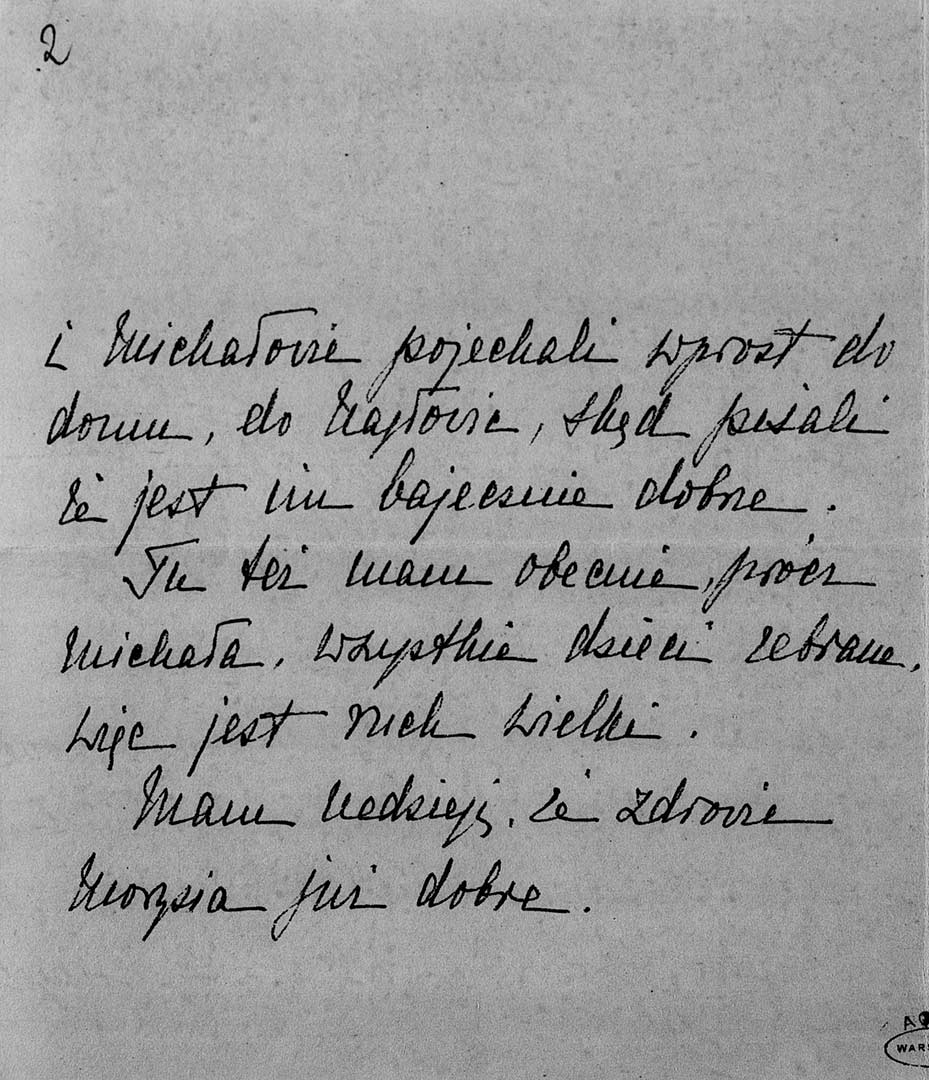 2
i Michałowie pojechali wprost do
domu, do Nagłowic, skąd pisali
że jest im bajecznie dobrze.
Tu też mam obecnie, prócz
Michała, wszystkie dzieci zebrane,
więc jest ruch wielki.
Mam nadzieję, że zdrowie
Morysia już dobre.